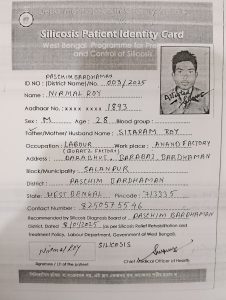 Silicosis Patient Identity Card
West Bengal Programme for Pre
and Control of Silicosis
PASCHIM BARDHAMAN
ID NO : (District Name)/No. 003/2025
Name : NIRMAL ROY
Aadhaar No.: xxxx xxxx 1893
Sex : M Age : 28 Blood group :
Father/Mother/Husband Name : SITARAM ROY
Occupation : LABOUR Work place : ANAND FACTORY
Address :
Block/Municipality : SALANPUR
District : PASCHIM BARDHAMAN
State : WEST BENGAL Pincode : 713335
Contact Number :
Recommended by Silicosis Diagnosis Board of PASCHIM BARDHAMAN
District, Dated (as per Silicosis Relief Rehabilitation and
Treatment Policy, Labour Department, Government of West Bengal).
Nirmal Roy SILICOSIS
Signature / LTI of the patient Chief Medical Officer of Health